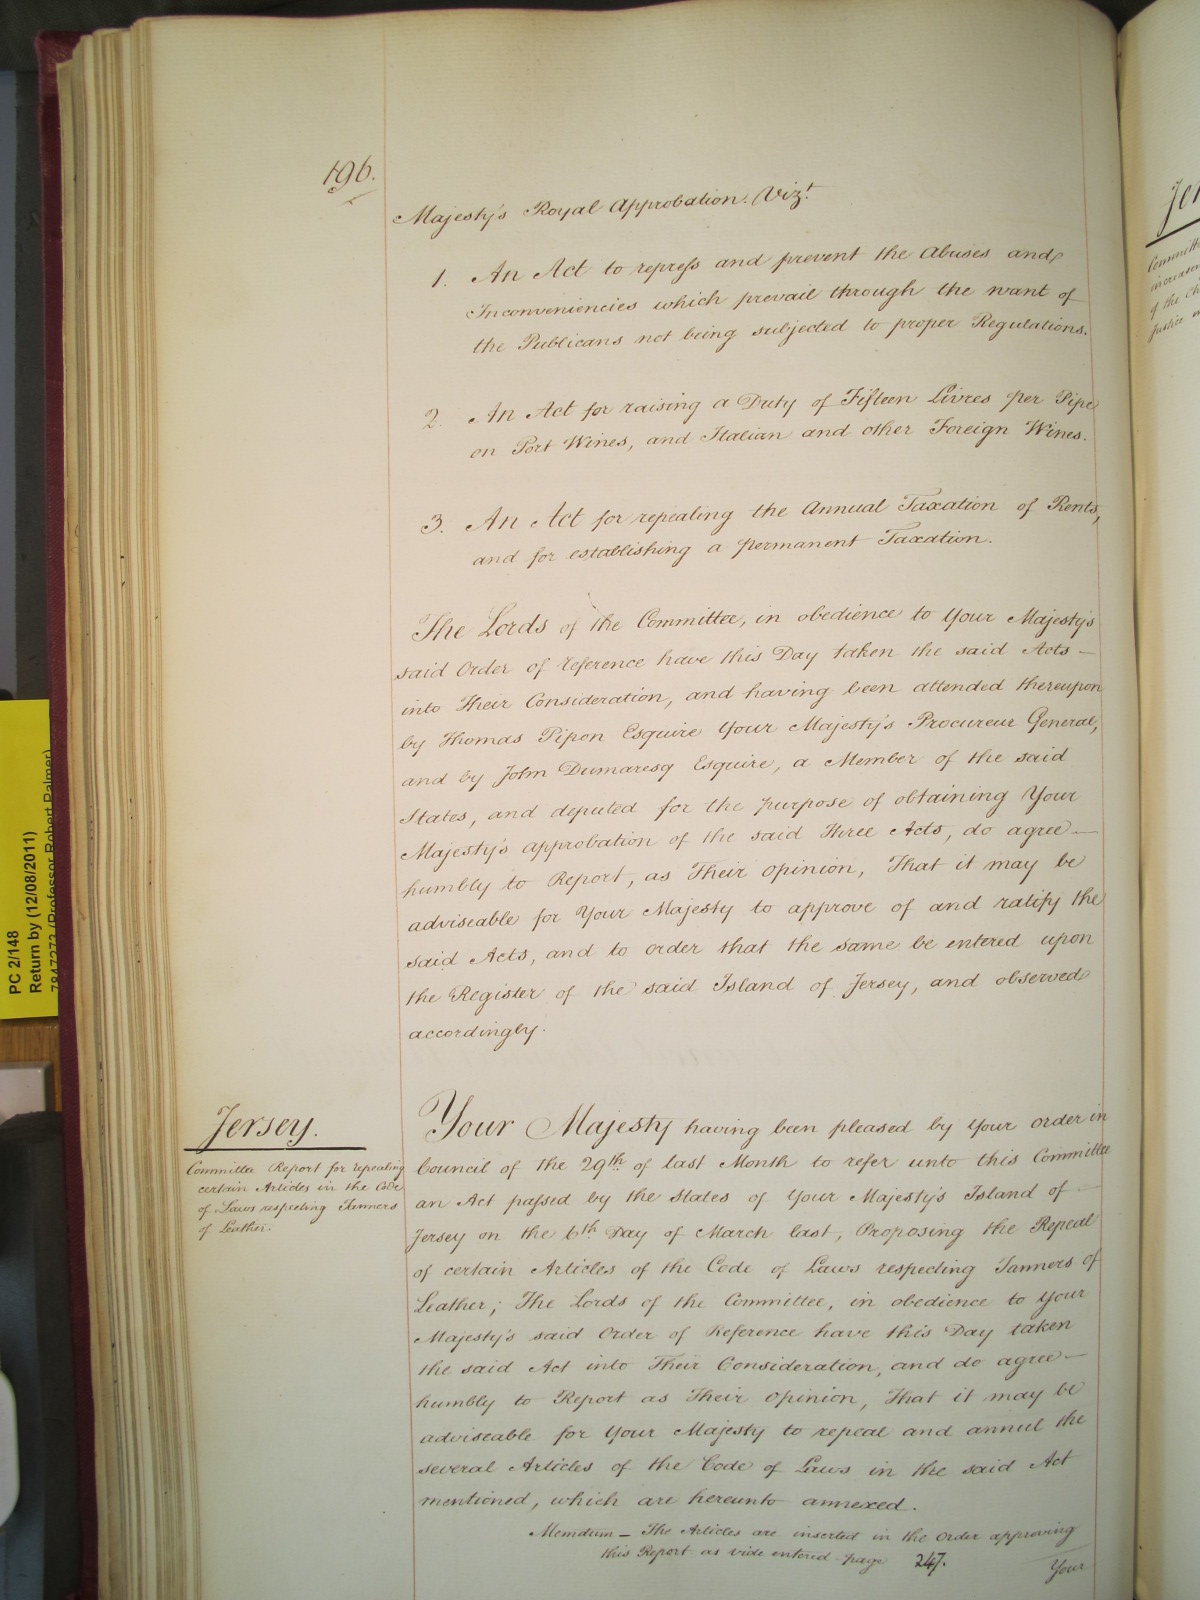 196.
Majesty's Royal Approbation. Vizt
1. An Act to repress and prevent the Abuses and
Inconveniencies which prevail through the want of
the Publicans not being subjected to proper Regulations.
2. An Act for raising a Duty of Fifteen Livres per Pipe
on Port Wines, and Italian and other Foreign Wines.
3. An Act for repealing the Annual Taxation of Rents,
and for establishing a permanent Taxation.
The Lords of the Committee, in obedience to Your Majesty's
said Order of Reference have this Day taken the said Acts —
into Their Consideration, and having been attended thereupon
by Thomas Pipon Esquire Your Majesty's Procureur General,
and by John Dumaresq Esquire, a Member of the said
States, and deputed for the purpose of obtaining Your
Majesty's approbation of the said Three Acts, do agree —
humbly to Report, as Their opinion, That it may be
adviseable for Your Majesty to approve of and ratify the
said Acts, and to order that the same be entered upon
the Register of the said Island of Jersey, and observed
accordingly.
Jersey.
Committee Report for repealing
certain Articles in the Code
of Laws respecting Tanners
of Leather.
Your Majesty having been pleased by Your order in
Council of the 29th of last Month to refer unto this Committee
an Act passed by the States of Your Majesty's Island of —
Jersey on the 6th Day of March last, Proposing the Repeal
of certain Articles of the Code of Laws respecting Tanners of
Leather; The Lords of the Committee, in obedience to Your
Majesty's said Order of Reference have this Day taken
the said Act into Their Consideration, and do agree —
humbly to Report as Their opinion, That it may be
adviseable for Your Majesty to repeal and annul the
several Articles of the Code of Laws in the said Act
mentioned, which are hereunto annexed.
Memdum — The Articles are inserted in the Order approving
this Report as vide entered page 247.
Your
PC 2/148
Return by (12/08/2011)
7847272 (Professor Robert Palmer)
Committee
of the
Justice